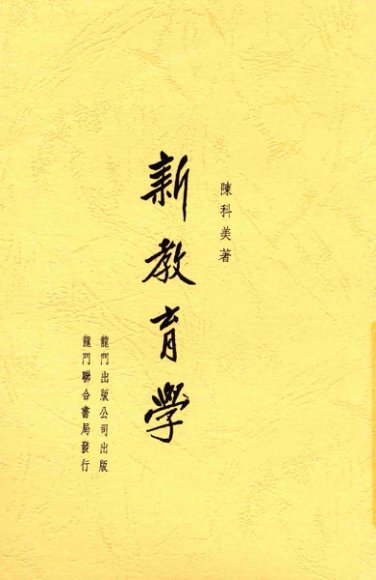 陳科美著
新教育學
龍門出版公司出版
龍門聯合書局發行